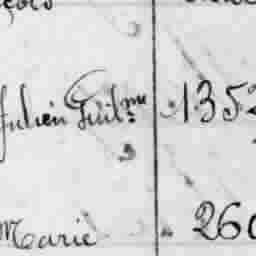 Julien Guilme 1352
Marie 260